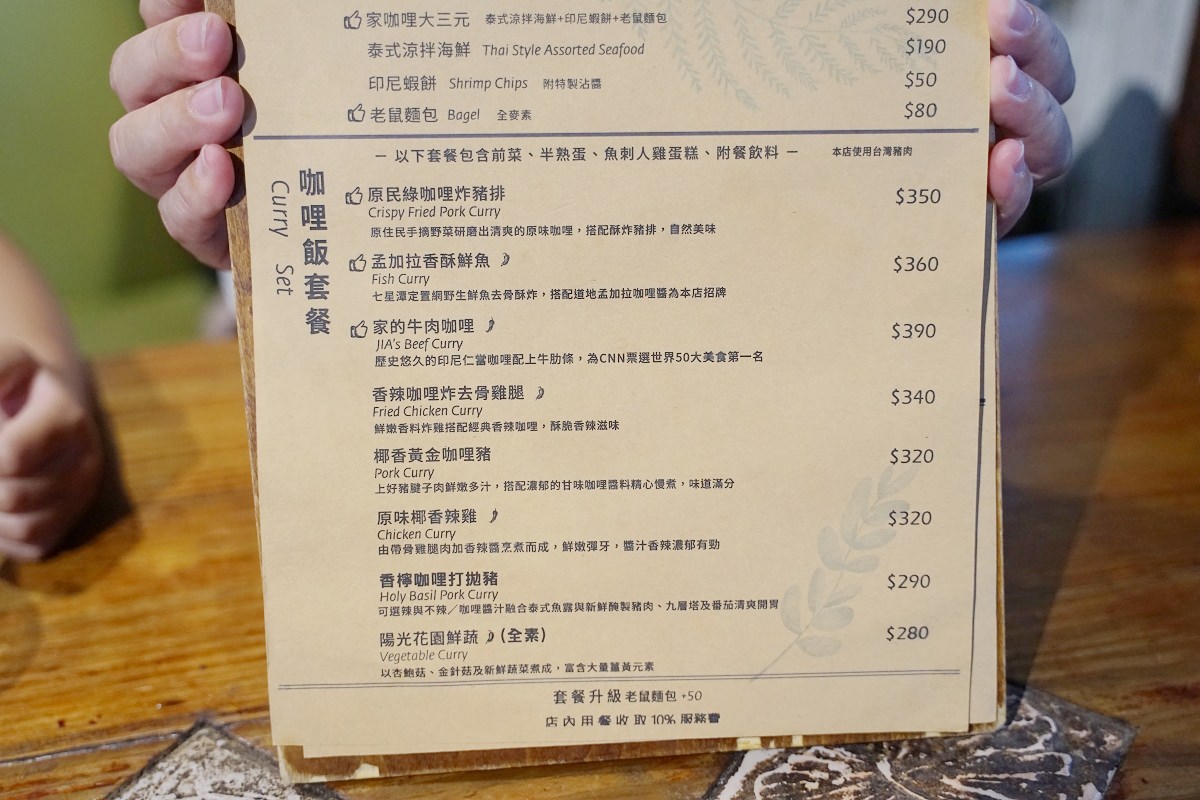 家咖哩大三元 泰式涼拌海鮮+印尼蝦餅+老鼠麵包 $290
泰式涼拌海鮮 Thai Style Assorted Seafood $190
印尼蝦餅 Shrimp Chips 附特製沾醬 $50
老鼠麵包 Bagel 全麥素 $80
— 以下套餐包含前菜、半熟蛋、魚刺人雞蛋糕、附餐飲料 — 本店使用台灣豬肉
咖哩飯套餐
Curry Set
原民綠咖哩炸豬排 $350
Crispy Fried Pork Curry
原住民手摘野菜研磨出清爽的原味咖哩，搭配酥炸豬排，自然美味
孟加拉香酥鮮魚 $360
Fish Curry
七星潭定置網野生鮮魚去骨酥炸，搭配道地孟加拉咖哩醬為本店招牌
家的牛肉咖哩 $390
JIA's Beef Curry
歷史悠久的印尼仁當咖哩配上牛肋條，為CNN票選世界50大美食第一名
香辣咖哩炸去骨雞腿 $340
Fried Chicken Curry
鮮嫩香料炸雞搭配經典香辣咖哩，酥脆香辣滋味
椰香黃金咖哩豬 $320
Pork Curry
上好豬腱子肉鮮嫩多汁，搭配濃郁的甘味咖哩醬料精心慢煮，味道滿分
原味椰香辣雞 $320
Chicken Curry
由帶骨雞腿肉加香辣醬烹煮而成，鮮嫩彈牙，醬汁香辣濃郁有勁
香檸咖哩打拋豬 $290
Holy Basil Pork Curry
可選辣與不辣／咖哩醬汁融合泰式魚露與新鮮醃製豬肉、九層塔及番茄清爽開胃
陽光花園鮮蔬 (全素) $280
Vegetable Curry
以杏鮑菇、金針菇及新鮮蔬菜煮成，富含大量薑黃元素
套餐升級老鼠麵包 +50
店內用餐收取10%服務費